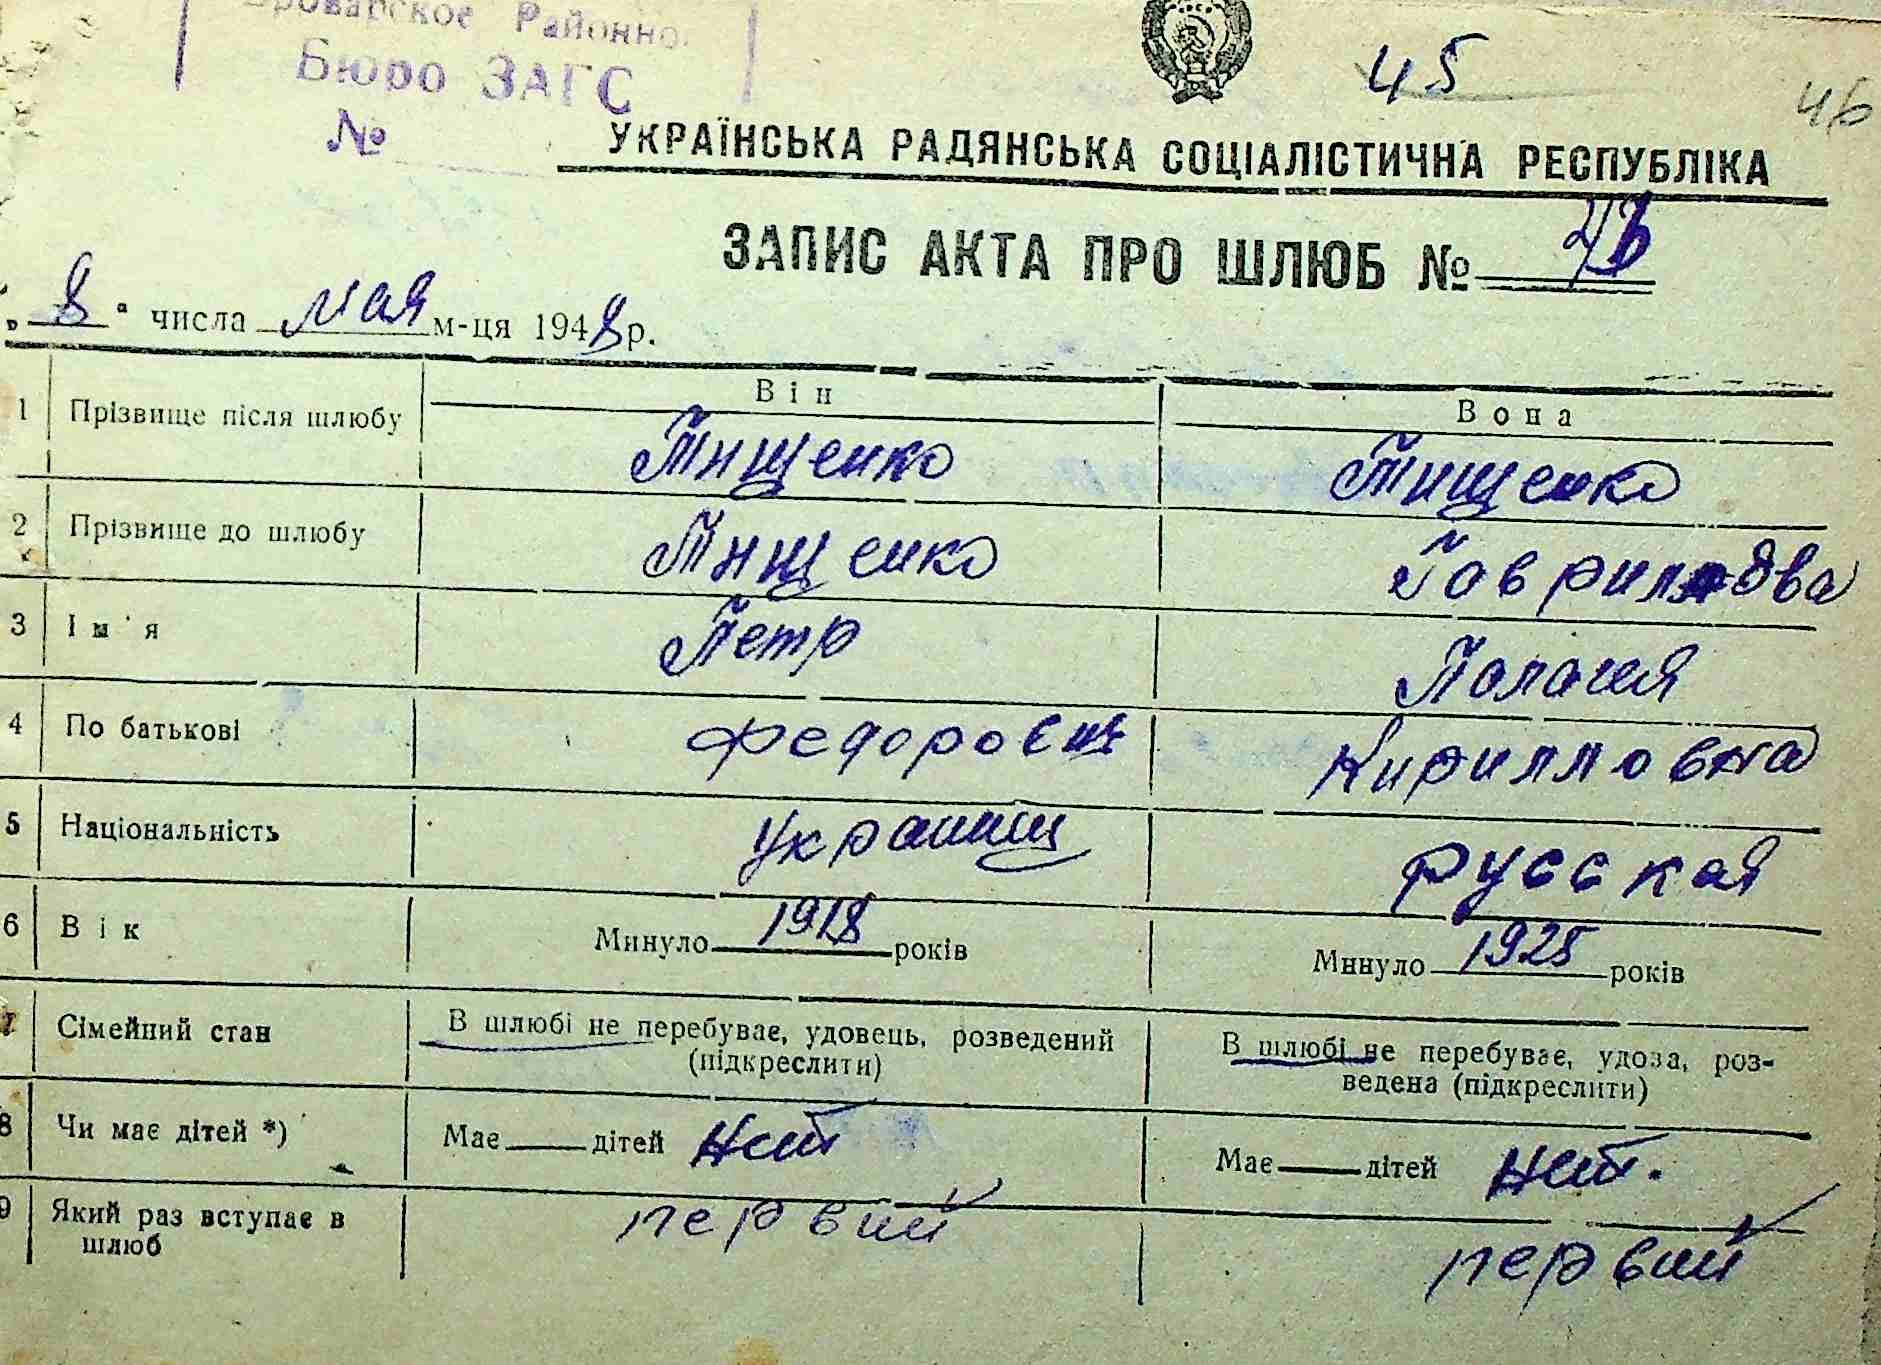 Районно
Бюро ЗАГС
№
45
46
УКРАЇНСЬКА РАДЯНСЬКА СОЦІАЛІСТИЧНА РЕСПУБЛІКА
ЗАПИС АКТА ПРО ШЛЮБ №
„ 8 “ числа мая м-ця 1948 р.
Він Вона
1 Прізвище після шлюбу Тищенко Тищенко
2 Прізвище до шлюбу Тищенко Гаврилова
3 Ім'я Петр Палагея
4 По батькові Федорович Кирилловна
5 Національність украинец русская
6 Вік Минуло 1918 років Минуло 1925 років
7 Сімейний стан В шлюбі не перебуває, удовець, розведений (підкреслити) В шлюбі не перебуває, удова, роз-
ведена (підкреслити)
8 Чи має дітей *) Має дітей нет Має дітей нет.
9 Який раз вступає в первий первий
шлюб